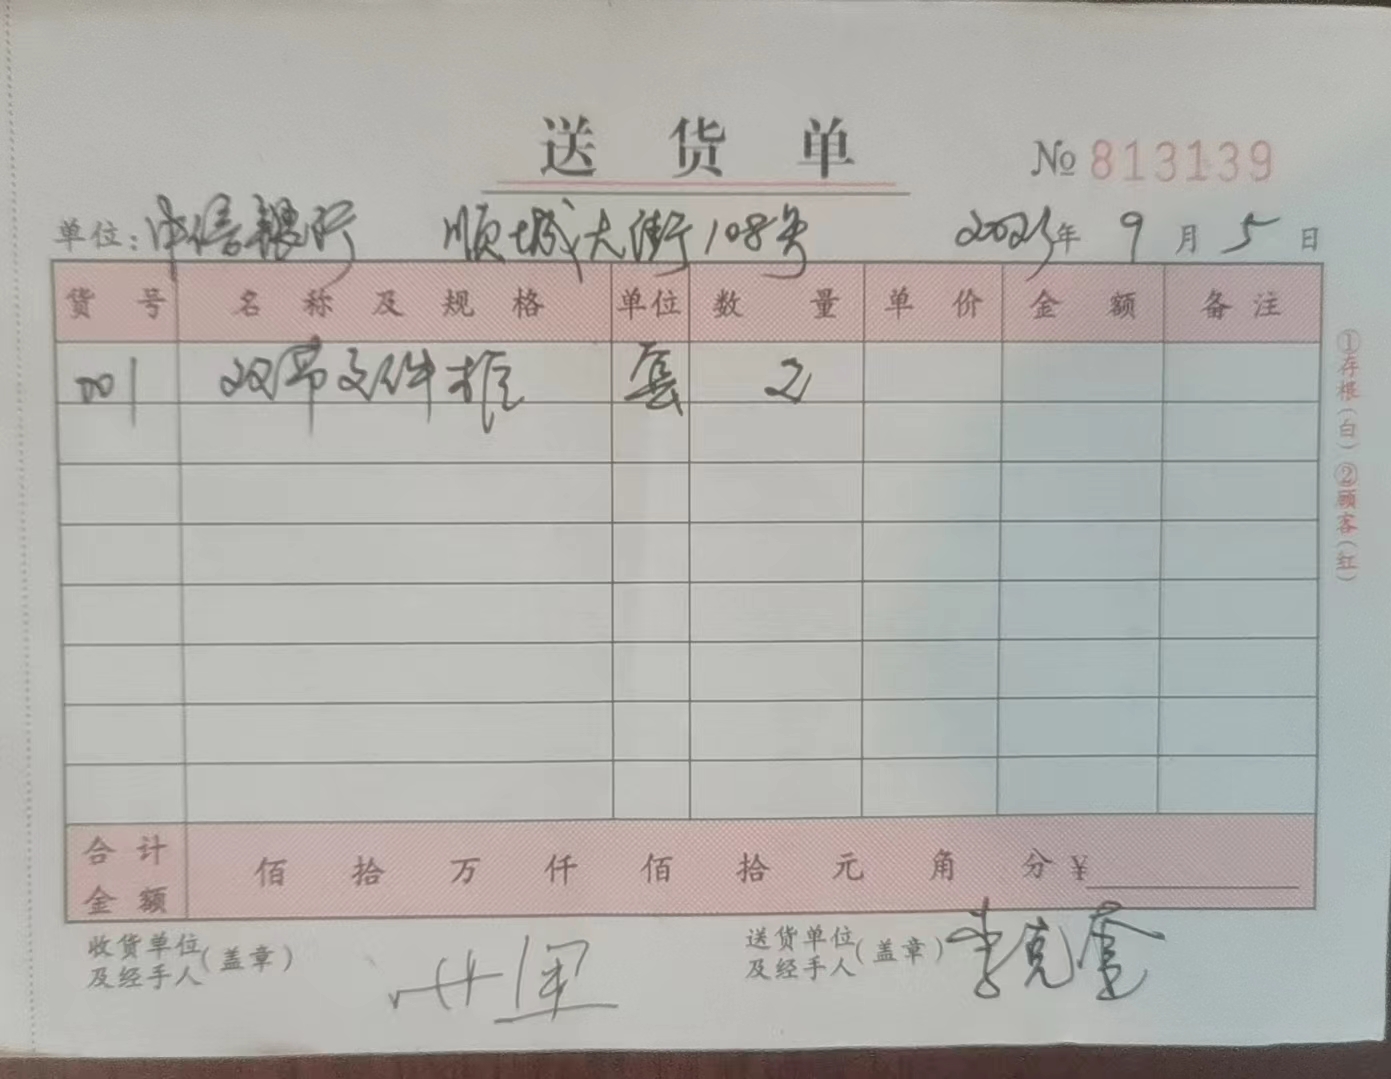 送货单
№ 813139
单位：中信银行 顺城大街108号 2023年9月5日
货号 名称及规格 单位 数量 单价 金额 备注
001 双节文件柜 套 2
合计金额 佰 拾 万 仟 佰 拾 元 角 分 ¥
收货单位及经手人(盖章)
送货单位及经手人(盖章) 李克
①存根(白) ②顾客(红)